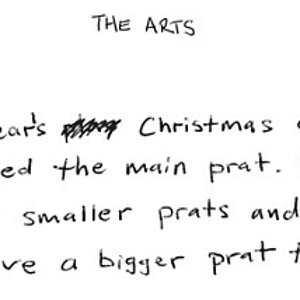 THE ARTS
ear's Christmas
ed the main prat.
smaller prats and
ve a bigger prat t